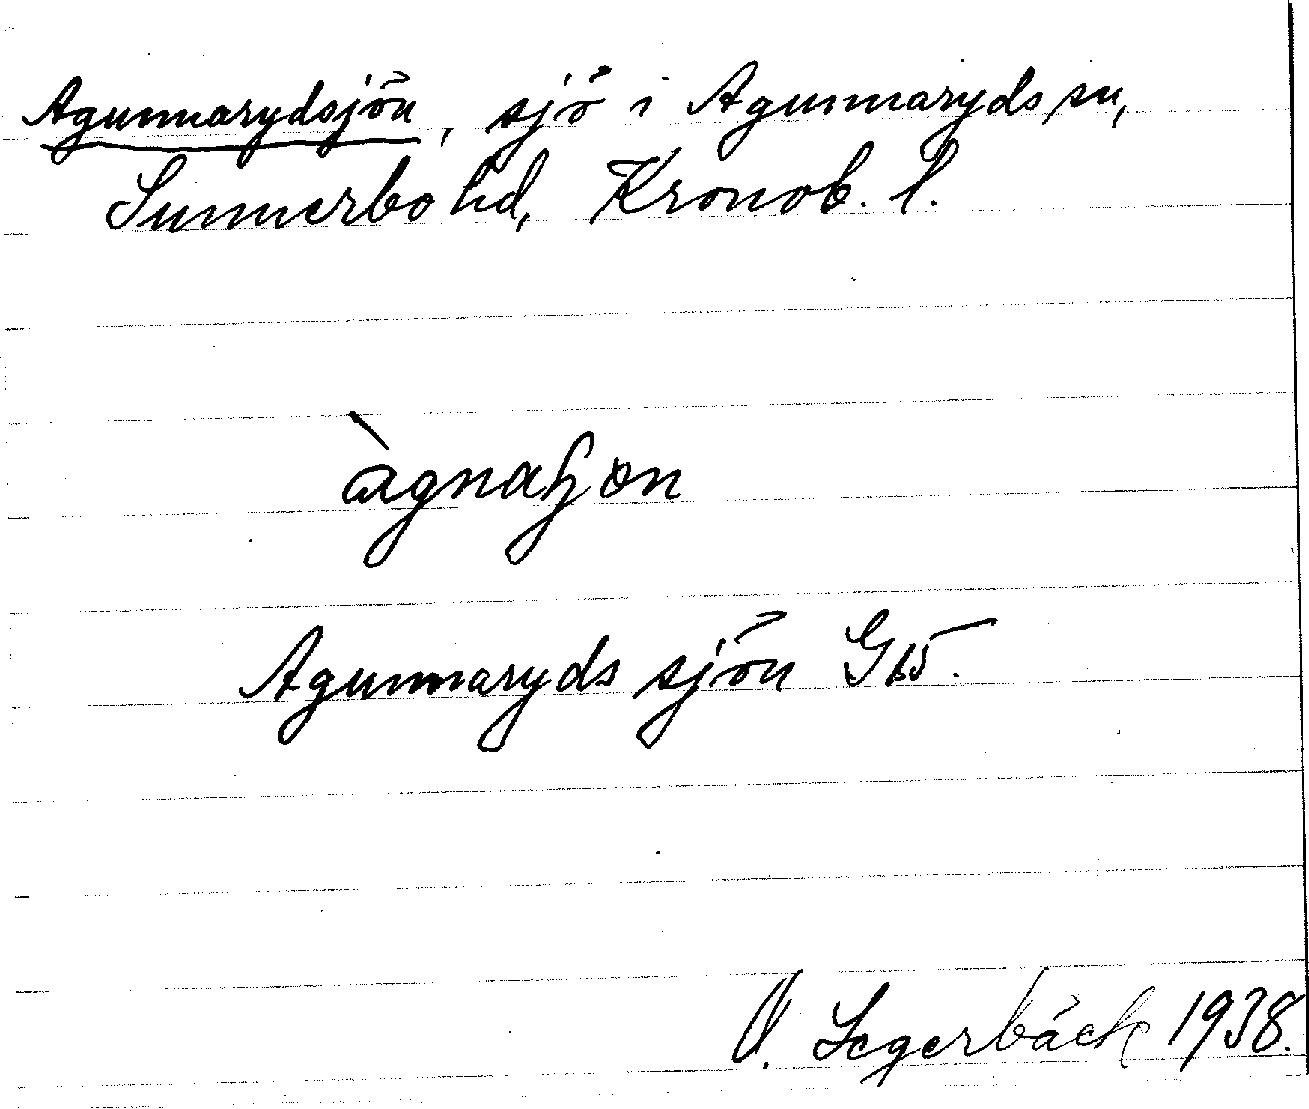 Agunnarydsjön, sjö i Agunnaryds sn,
Sunnerbo hd, Kronob. l.
àgnaɧɷn
Agunnaryds sjön Gb5.
V. Segerbäck 1938.